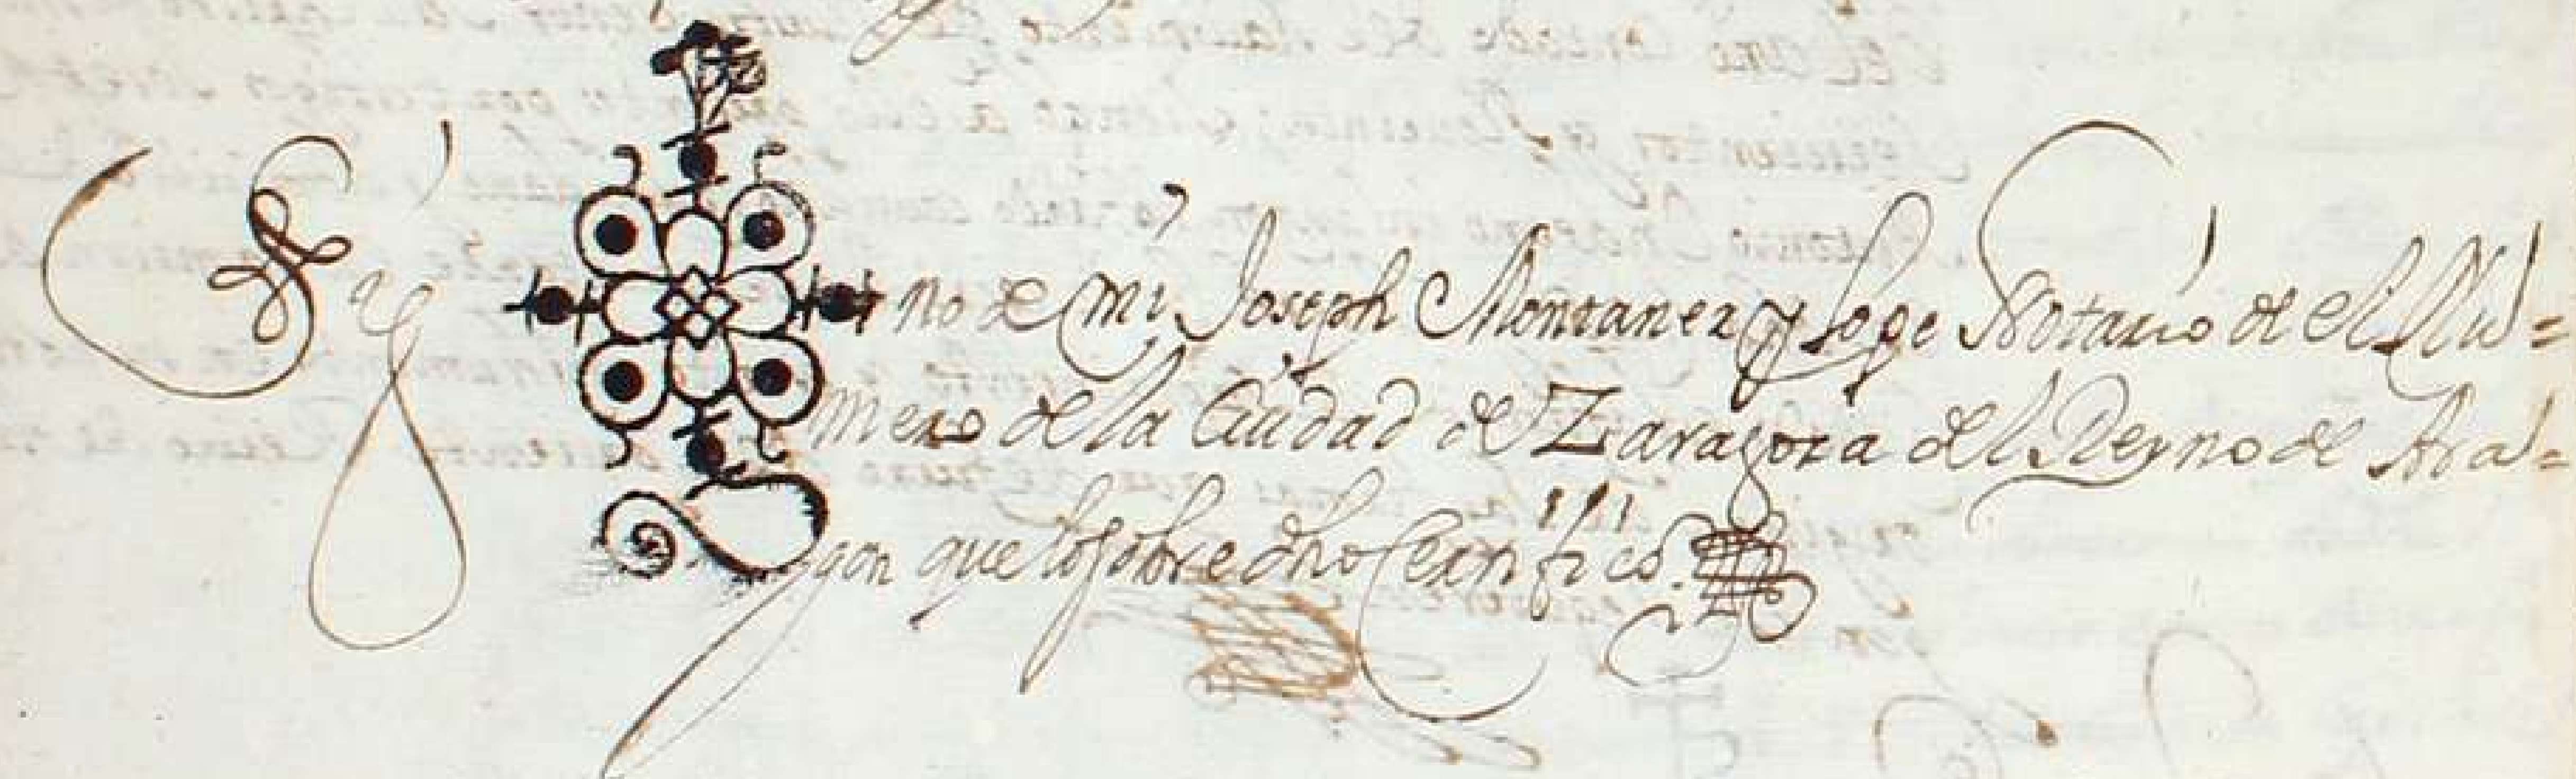 Sig no de mi Joseph Montanez y Lope Notario de el Nu=
mero de la Ciudad de Zaragoza del Reyno de Ara=
gon que lo sobre dho Certifico.